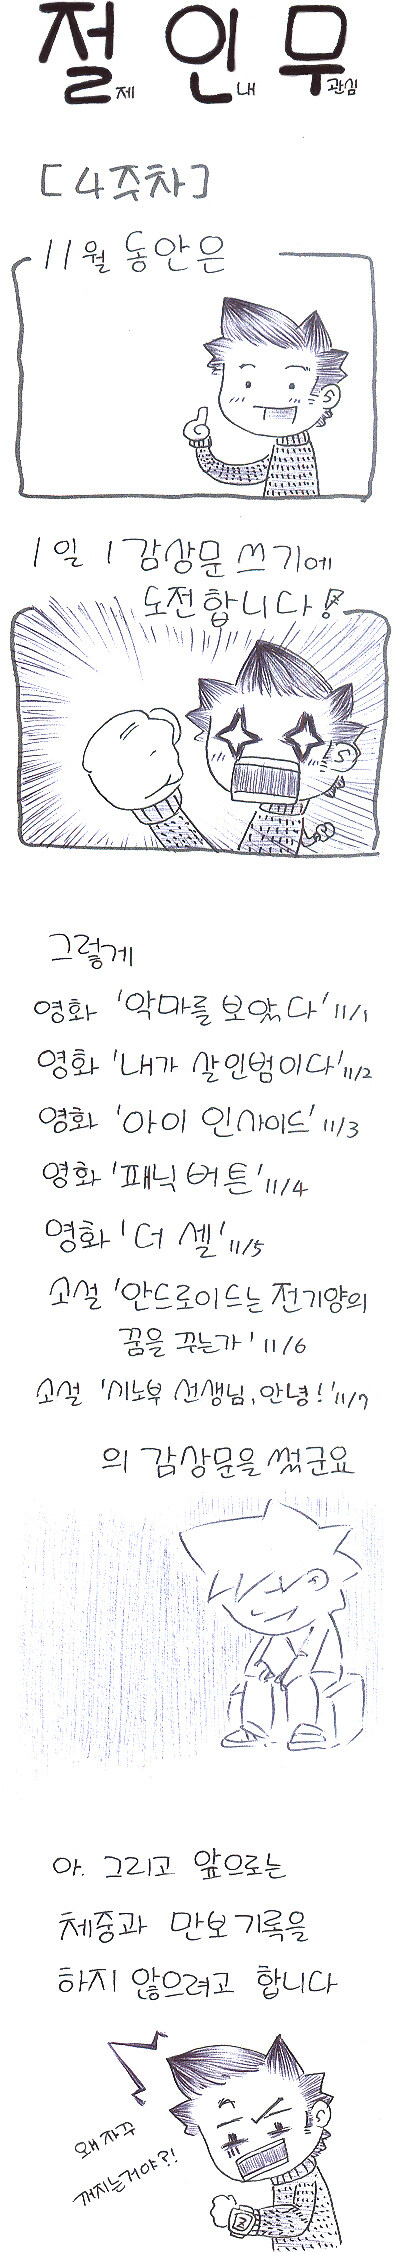 절제 인내 무관심
[4주차]
11월 동안은
1일 1감상문 쓰기에
도전합니다!
그렇게
영화 '악마를 보았다' 11/1
영화 '내가 살인범이다' 11/2
영화 '아이 인사이드' 11/3
영화 '패닉 버튼' 11/4
영화 '더 셀' 11/5
소설 '안드로이드는 전기양의
꿈을 꾸는가' 11/6
소설 '시노부 선생님, 안녕!' 11/7
의 감상문을 썼군요
아. 그리고 앞으로는
체중과 만보기록을
하지 않으려고 합니다
왜 자꾸
꺼지는거야?!